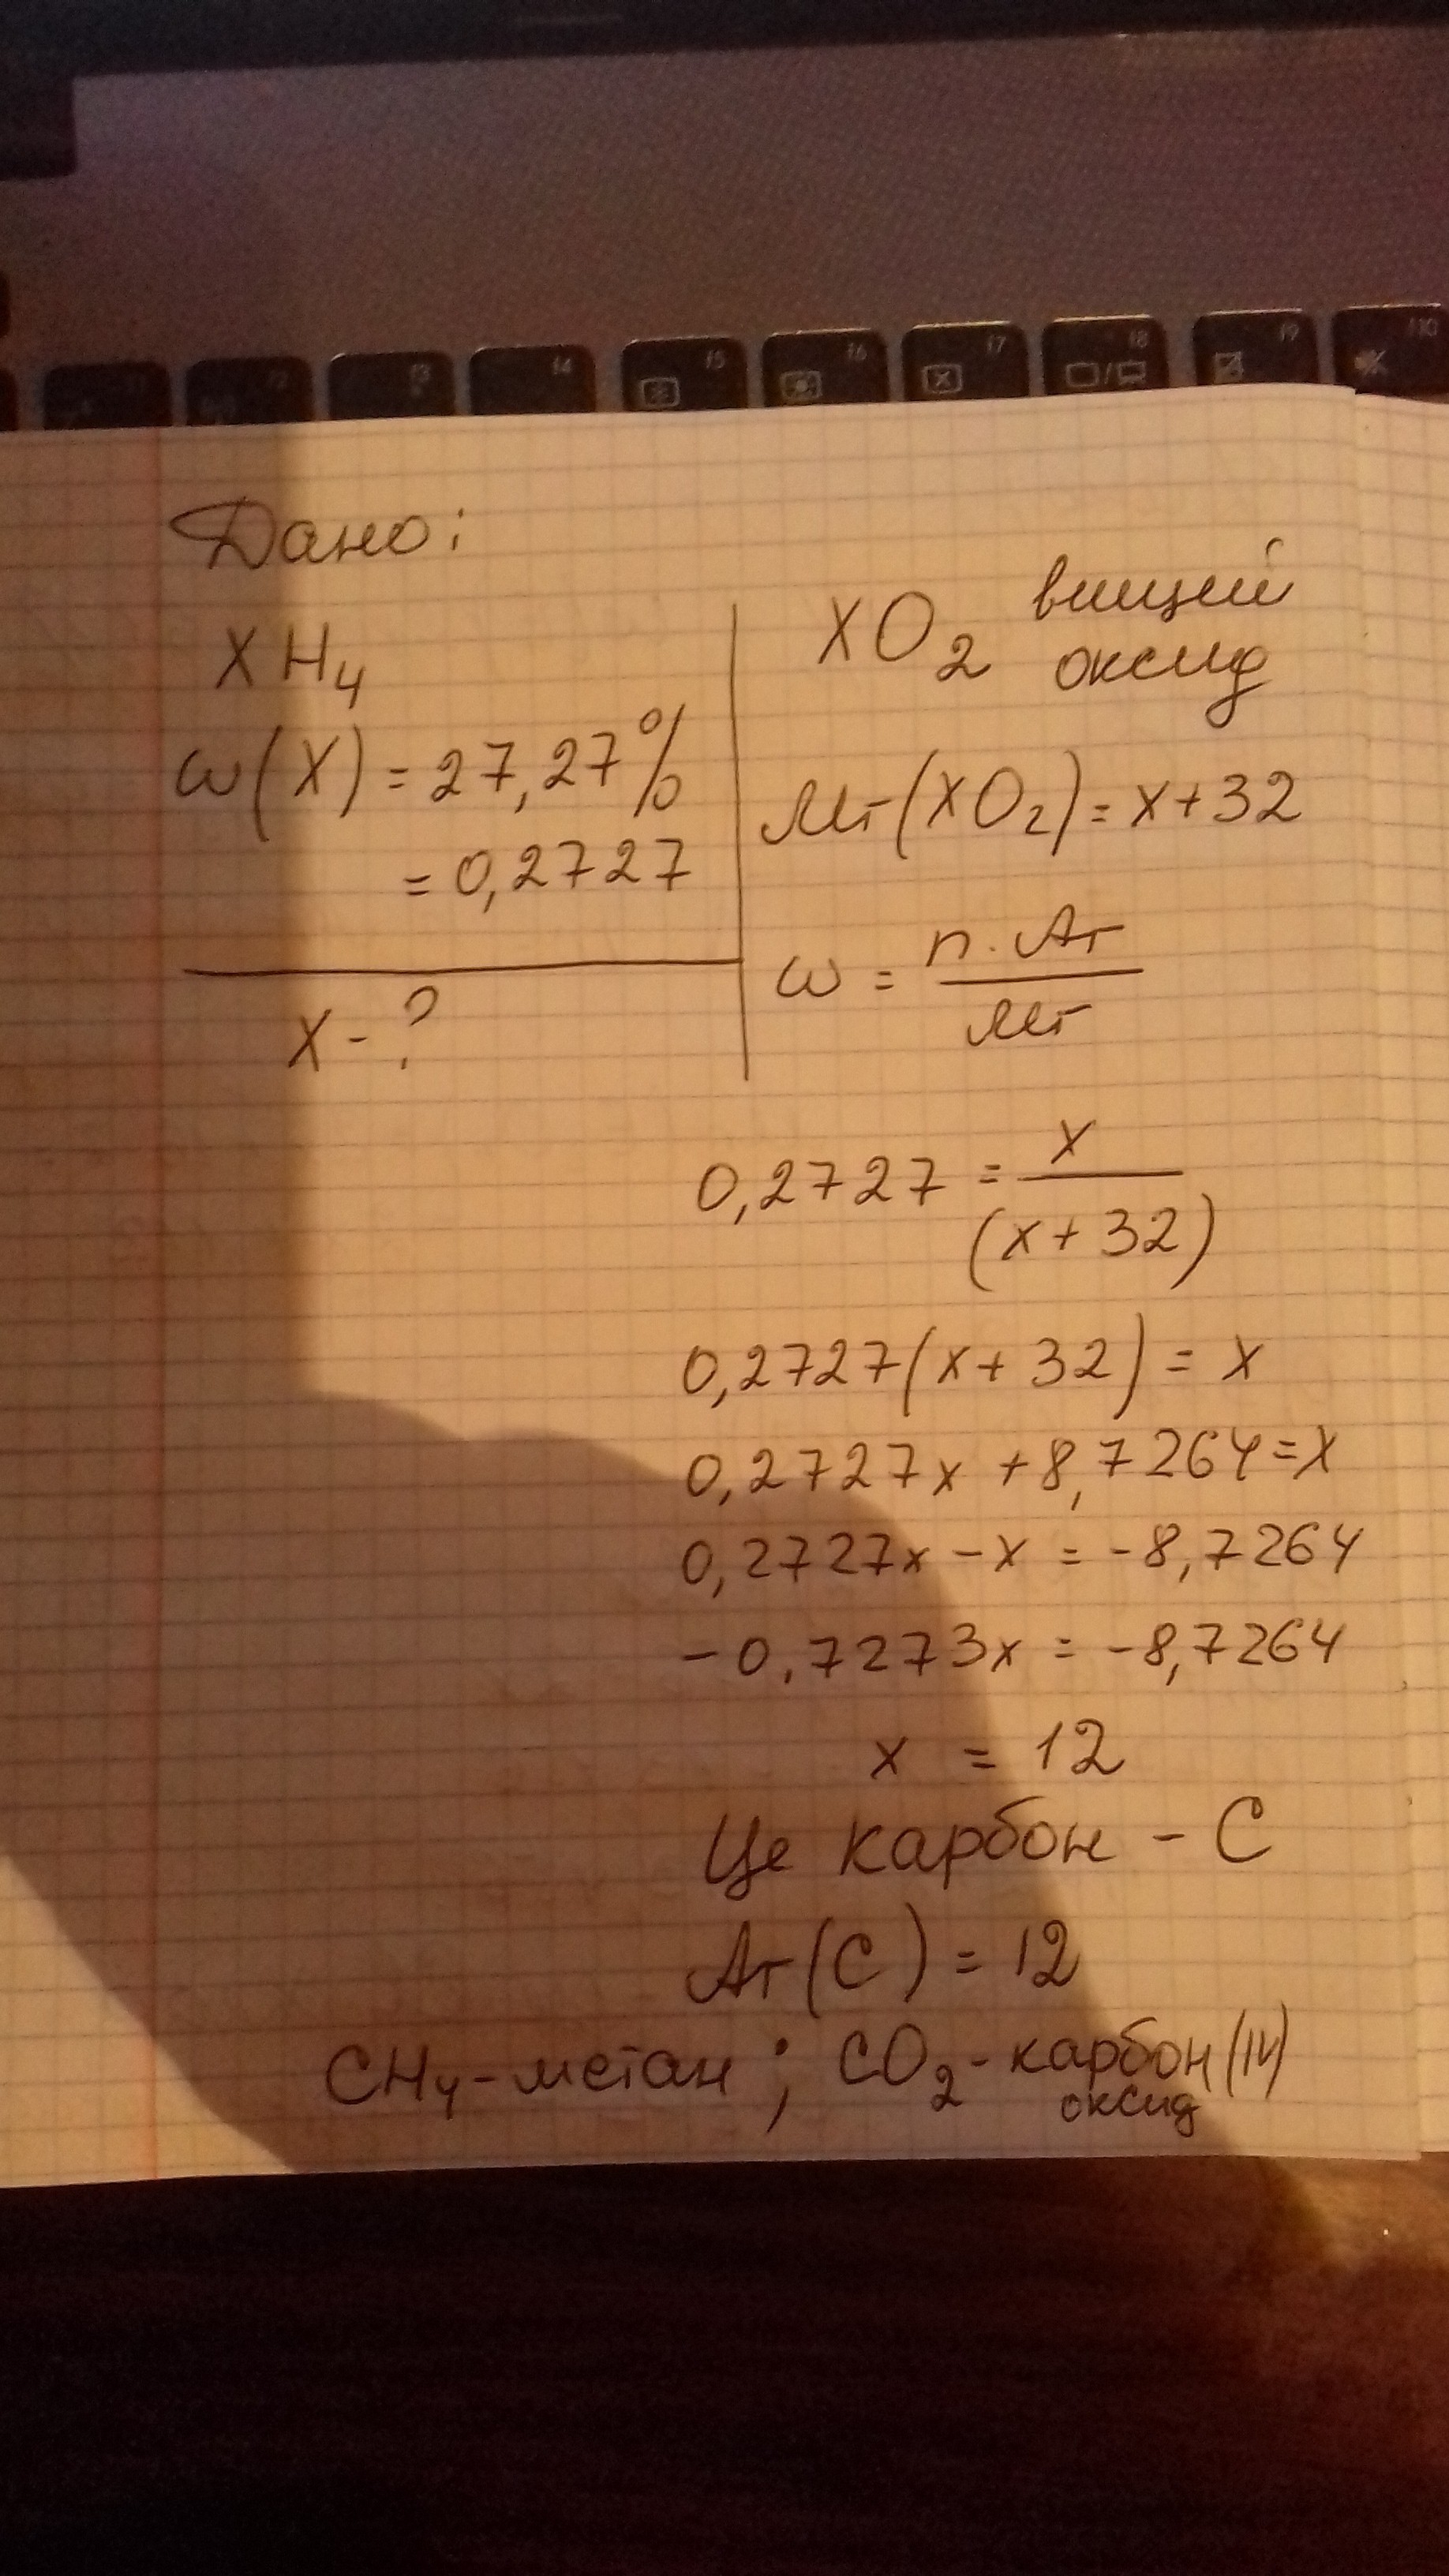 f2
f3
f4
f5
f6
f7
f8
f9
f10
Дано:
XH₄
ω(X) = 27,27%
= 0,2727
X - ?
XO₂ вищий
оксид
Mr(XO₂) = x + 32
ω = n · Ar / Mr
0,2727 = x / (x + 32)
0,2727(x + 32) = x
0,2727x + 8,7264 = x
0,2727x - x = -8,7264
-0,7273x = -8,7264
x = 12
Це карбон - C
Ar(C) = 12
CH₄ - метан ; CO₂ - карбон (IV)
оксид